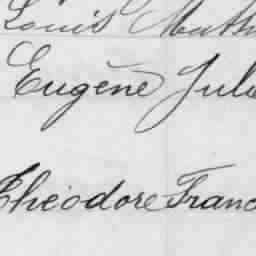 Louis Math
Eugène Jule
Théodore Franc